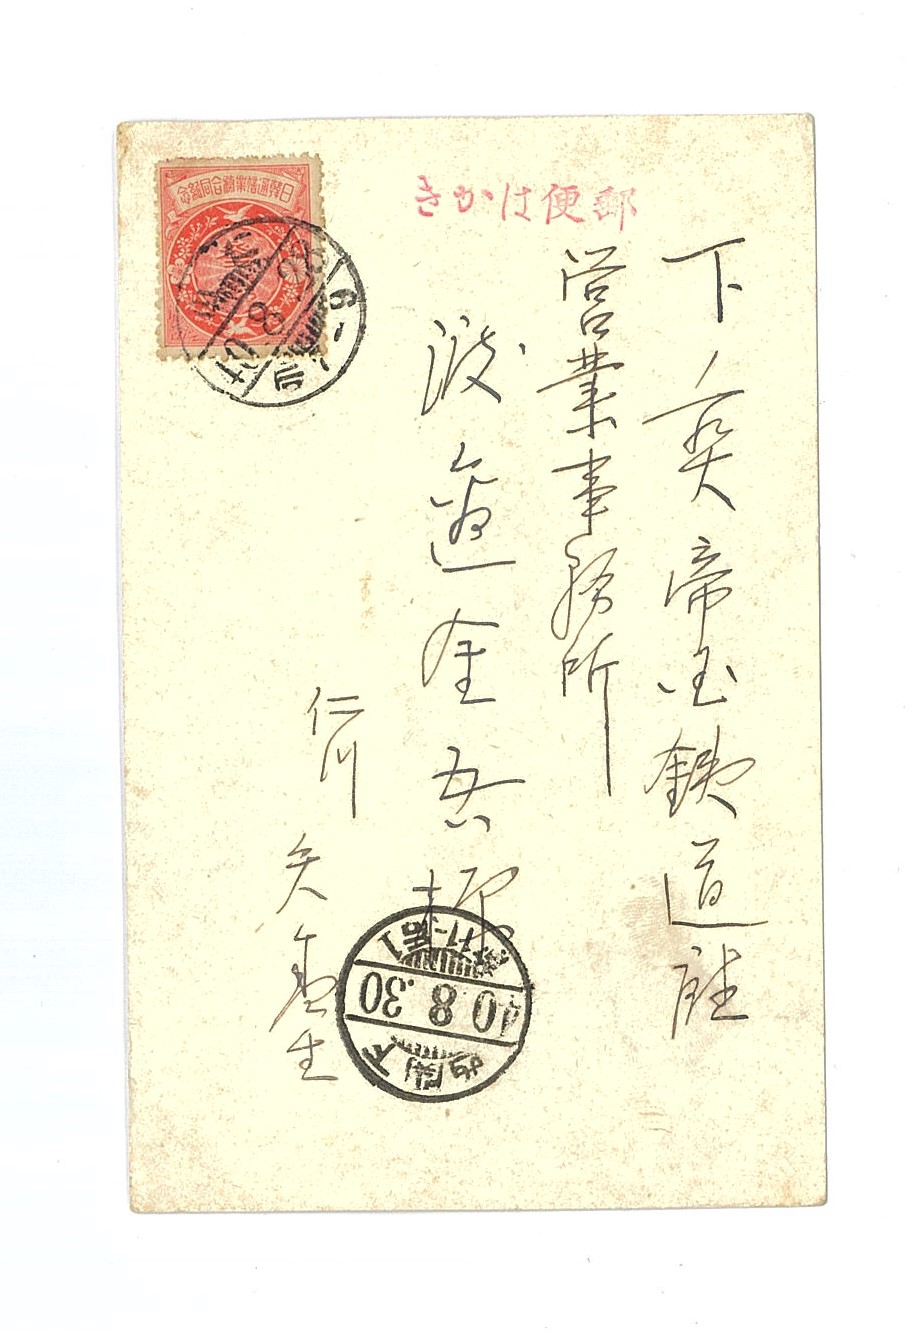 郵便はかき
日韓通信業務合同紀念
下関帝国鉄道庁
営業事務所
渡邉金吾様
仁川
矢
生
40 8 .30
下関